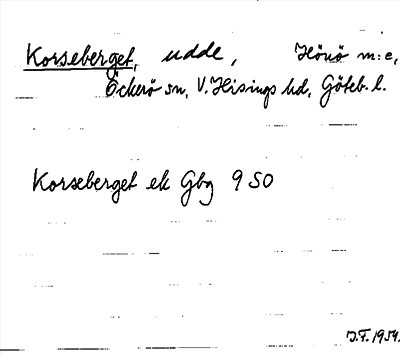 Korseberget, udde, Hönö m:e,
Öckerö sn, V. Hisings hd, Göteb. l.
Korseberget ek Gbg 9 SO
J.F. 1954.